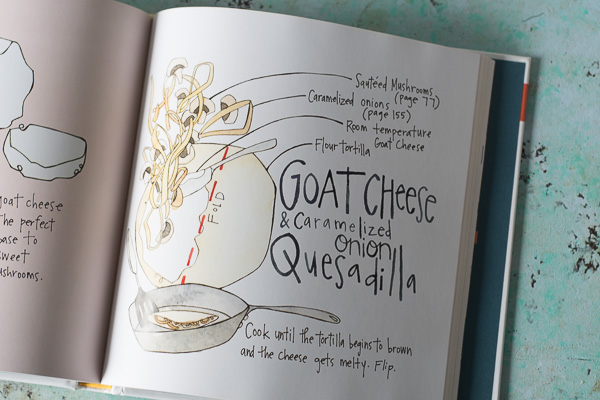 goat cheese
the perfect
base to
sweet
mushrooms.
Sautéed Mushrooms
(page 77)
Caramelized onions
(page 155)
Room temperature
Goat Cheese
Flour tortilla
FOLD
GOAT CHeese
& Caramelized
onion
Quesadilla
Cook until the tortilla begins to brown
and the cheese gets melty. Flip.